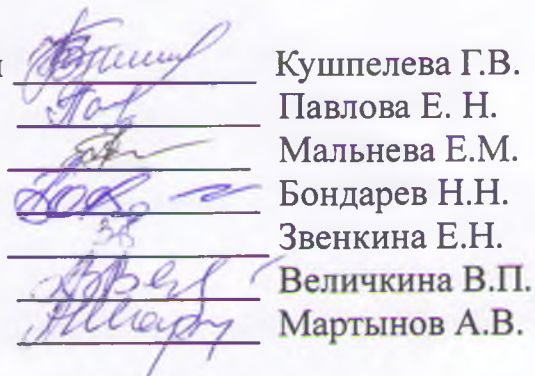 Кушпелева Г.В.
Павлова Е. Н.
Мальнева Е.М.
Бондарев Н.Н.
Звенкина Е.Н.
Величкина В.П.
Мартынов А.В.